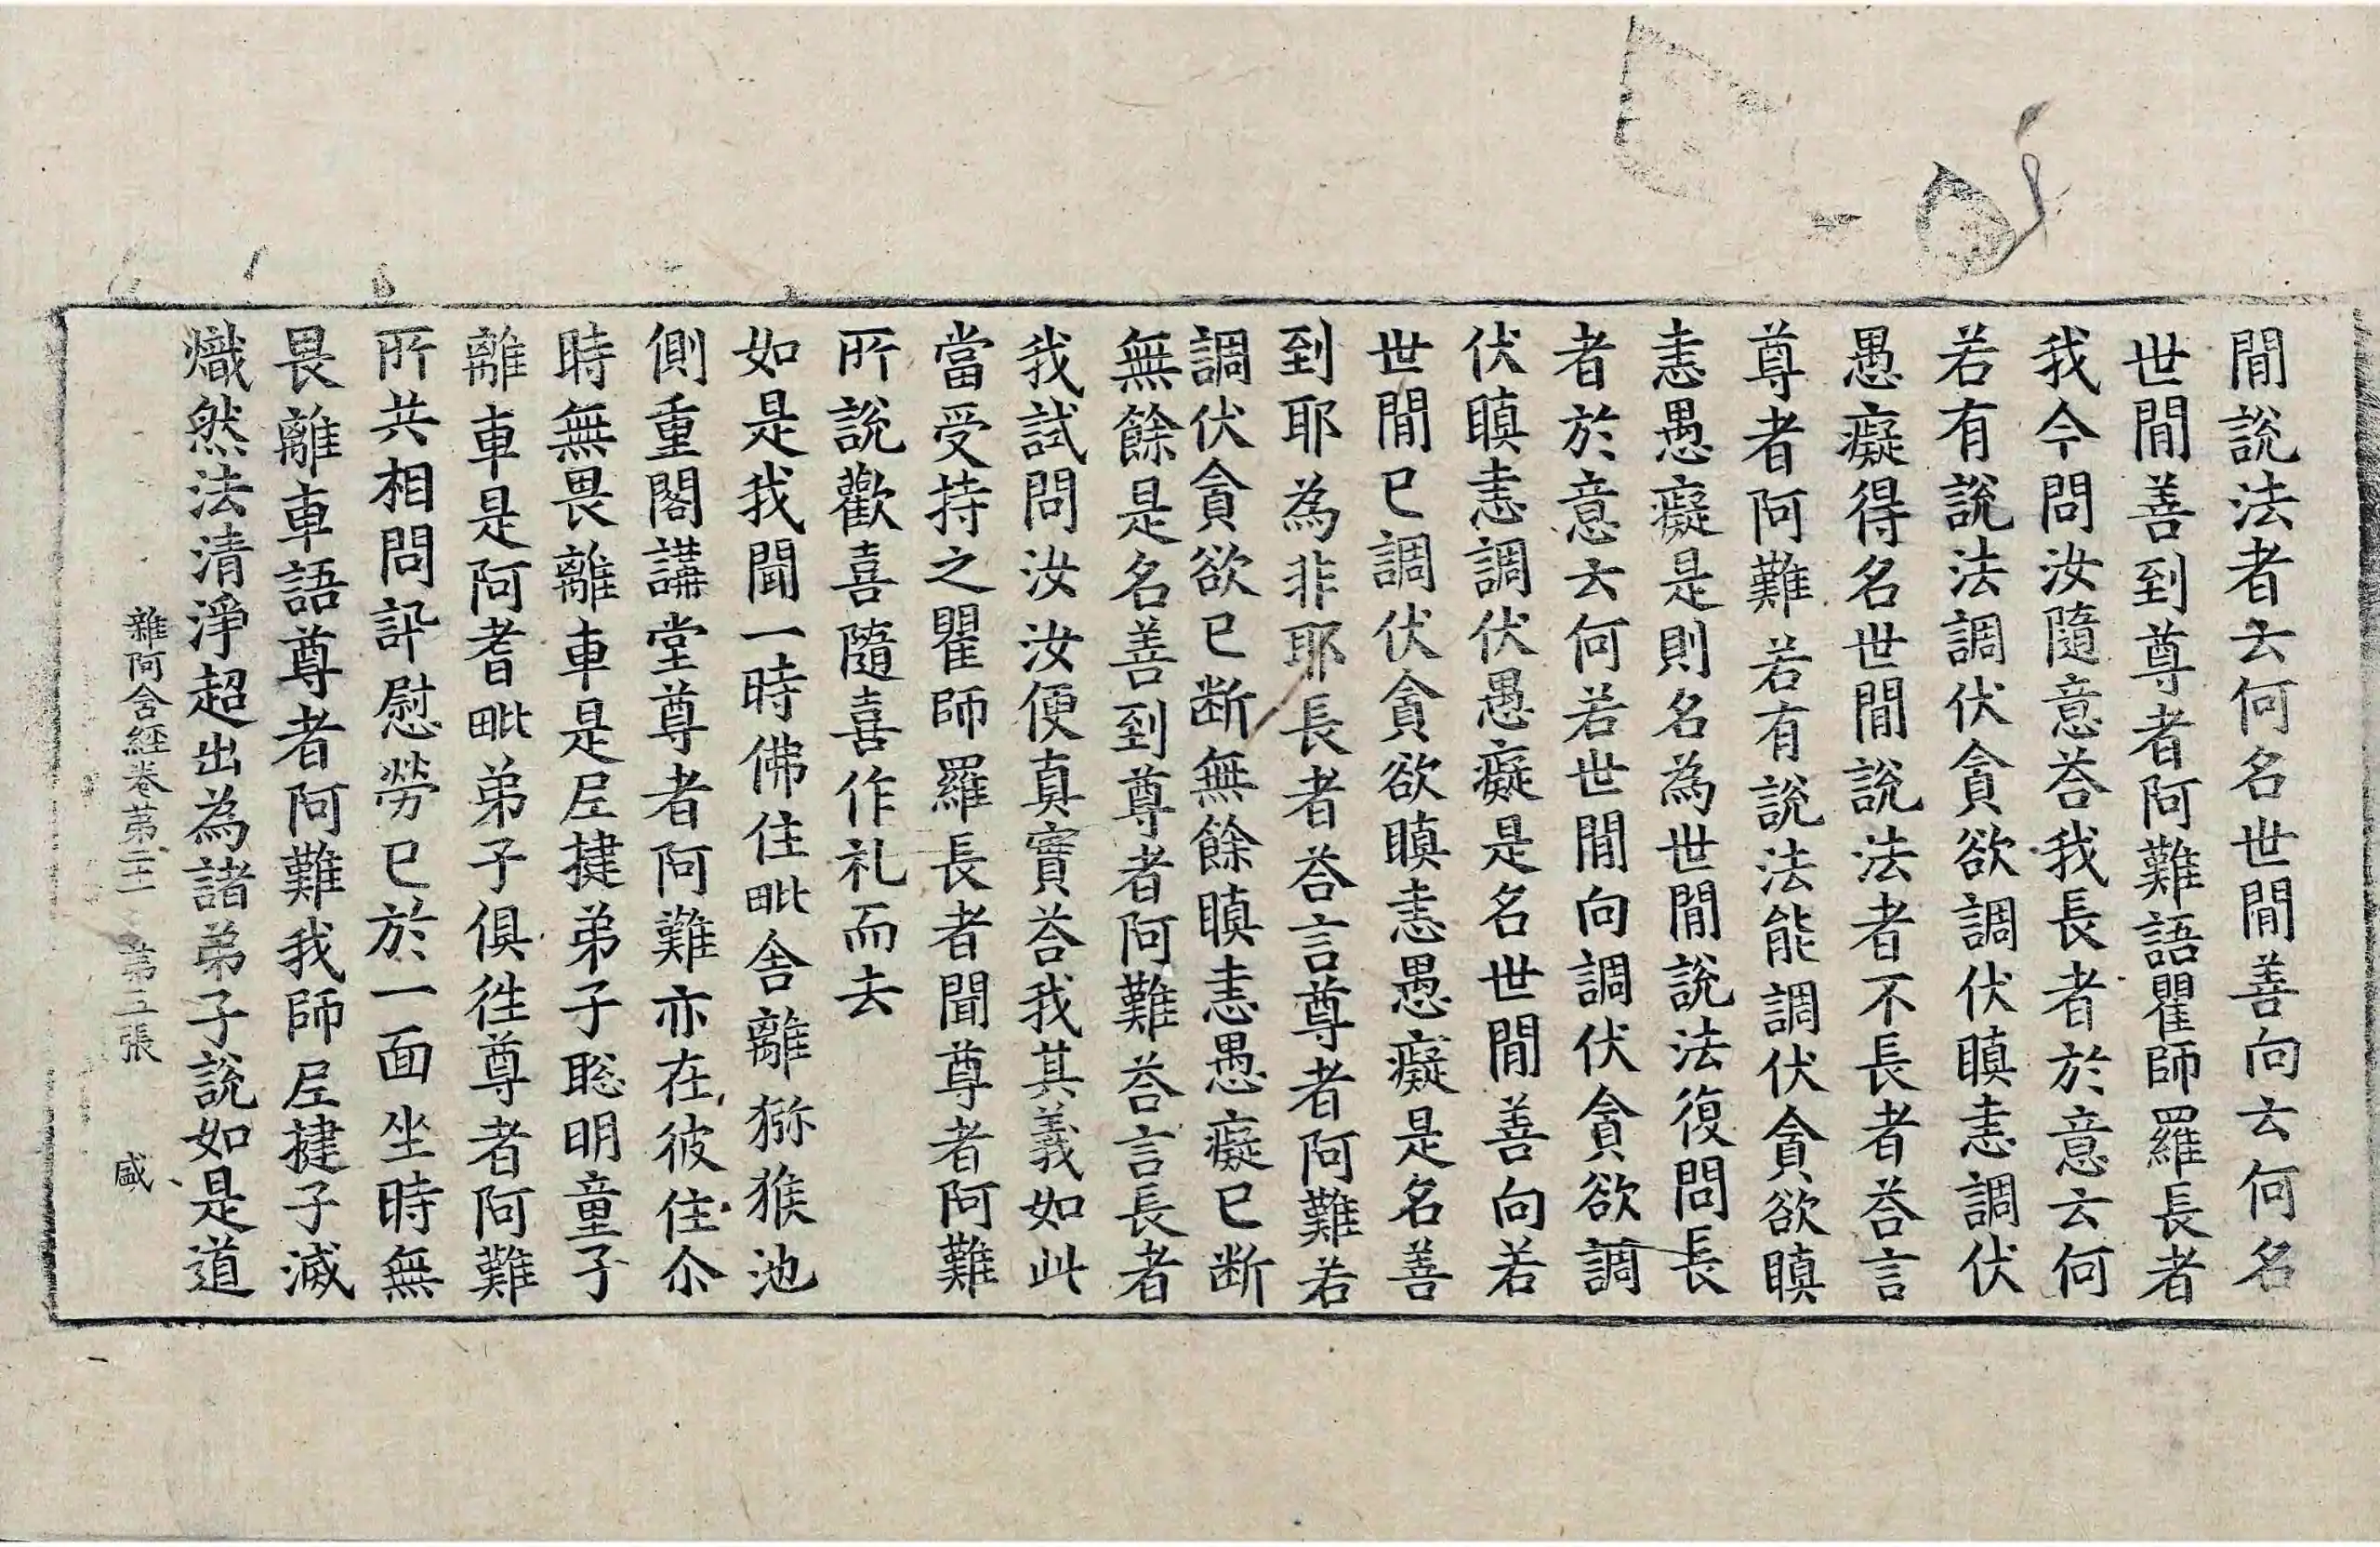 間說法者云何名世間善向云何名
世間善到尊者阿難語瞿師羅長者
我今問汝隨意荅我長者於意云何
若有說法調伏貪欲調伏瞋恚調伏
愚癡得名世間說法者不長者荅言
尊者阿難若有說法能調伏貪欲瞋
恚愚癡是則名為世間說法復問長
者於意云何若世間向調伏貪欲調
伏瞋恚調伏愚癡是名世間善向若
世間已調伏貪欲瞋恚愚癡是名善
到耶為非耶長者荅言尊者阿難若
調伏貪欲已断無餘瞋恚愚癡已断
無餘是名善到尊者阿難荅言長者
我試問汝汝便真實荅我其義如此
當受持之瞿師羅長者聞尊者阿難
所說歡喜隨喜作礼而去
如是我聞一時佛住毗舍離獼猴池
側重閣講堂尊者阿難亦在彼住尒
時無畏離車是𡰱揵弟子聡明童子
離車是阿耆毗弟子俱徃尊者阿難
所共相問訊慰勞已於一面坐時無
畏離車語尊者阿難我師𡰱揵子滅
熾然法清淨超出為諸弟子說如是道
雜阿含経卷苐二十一 苐五張 盛